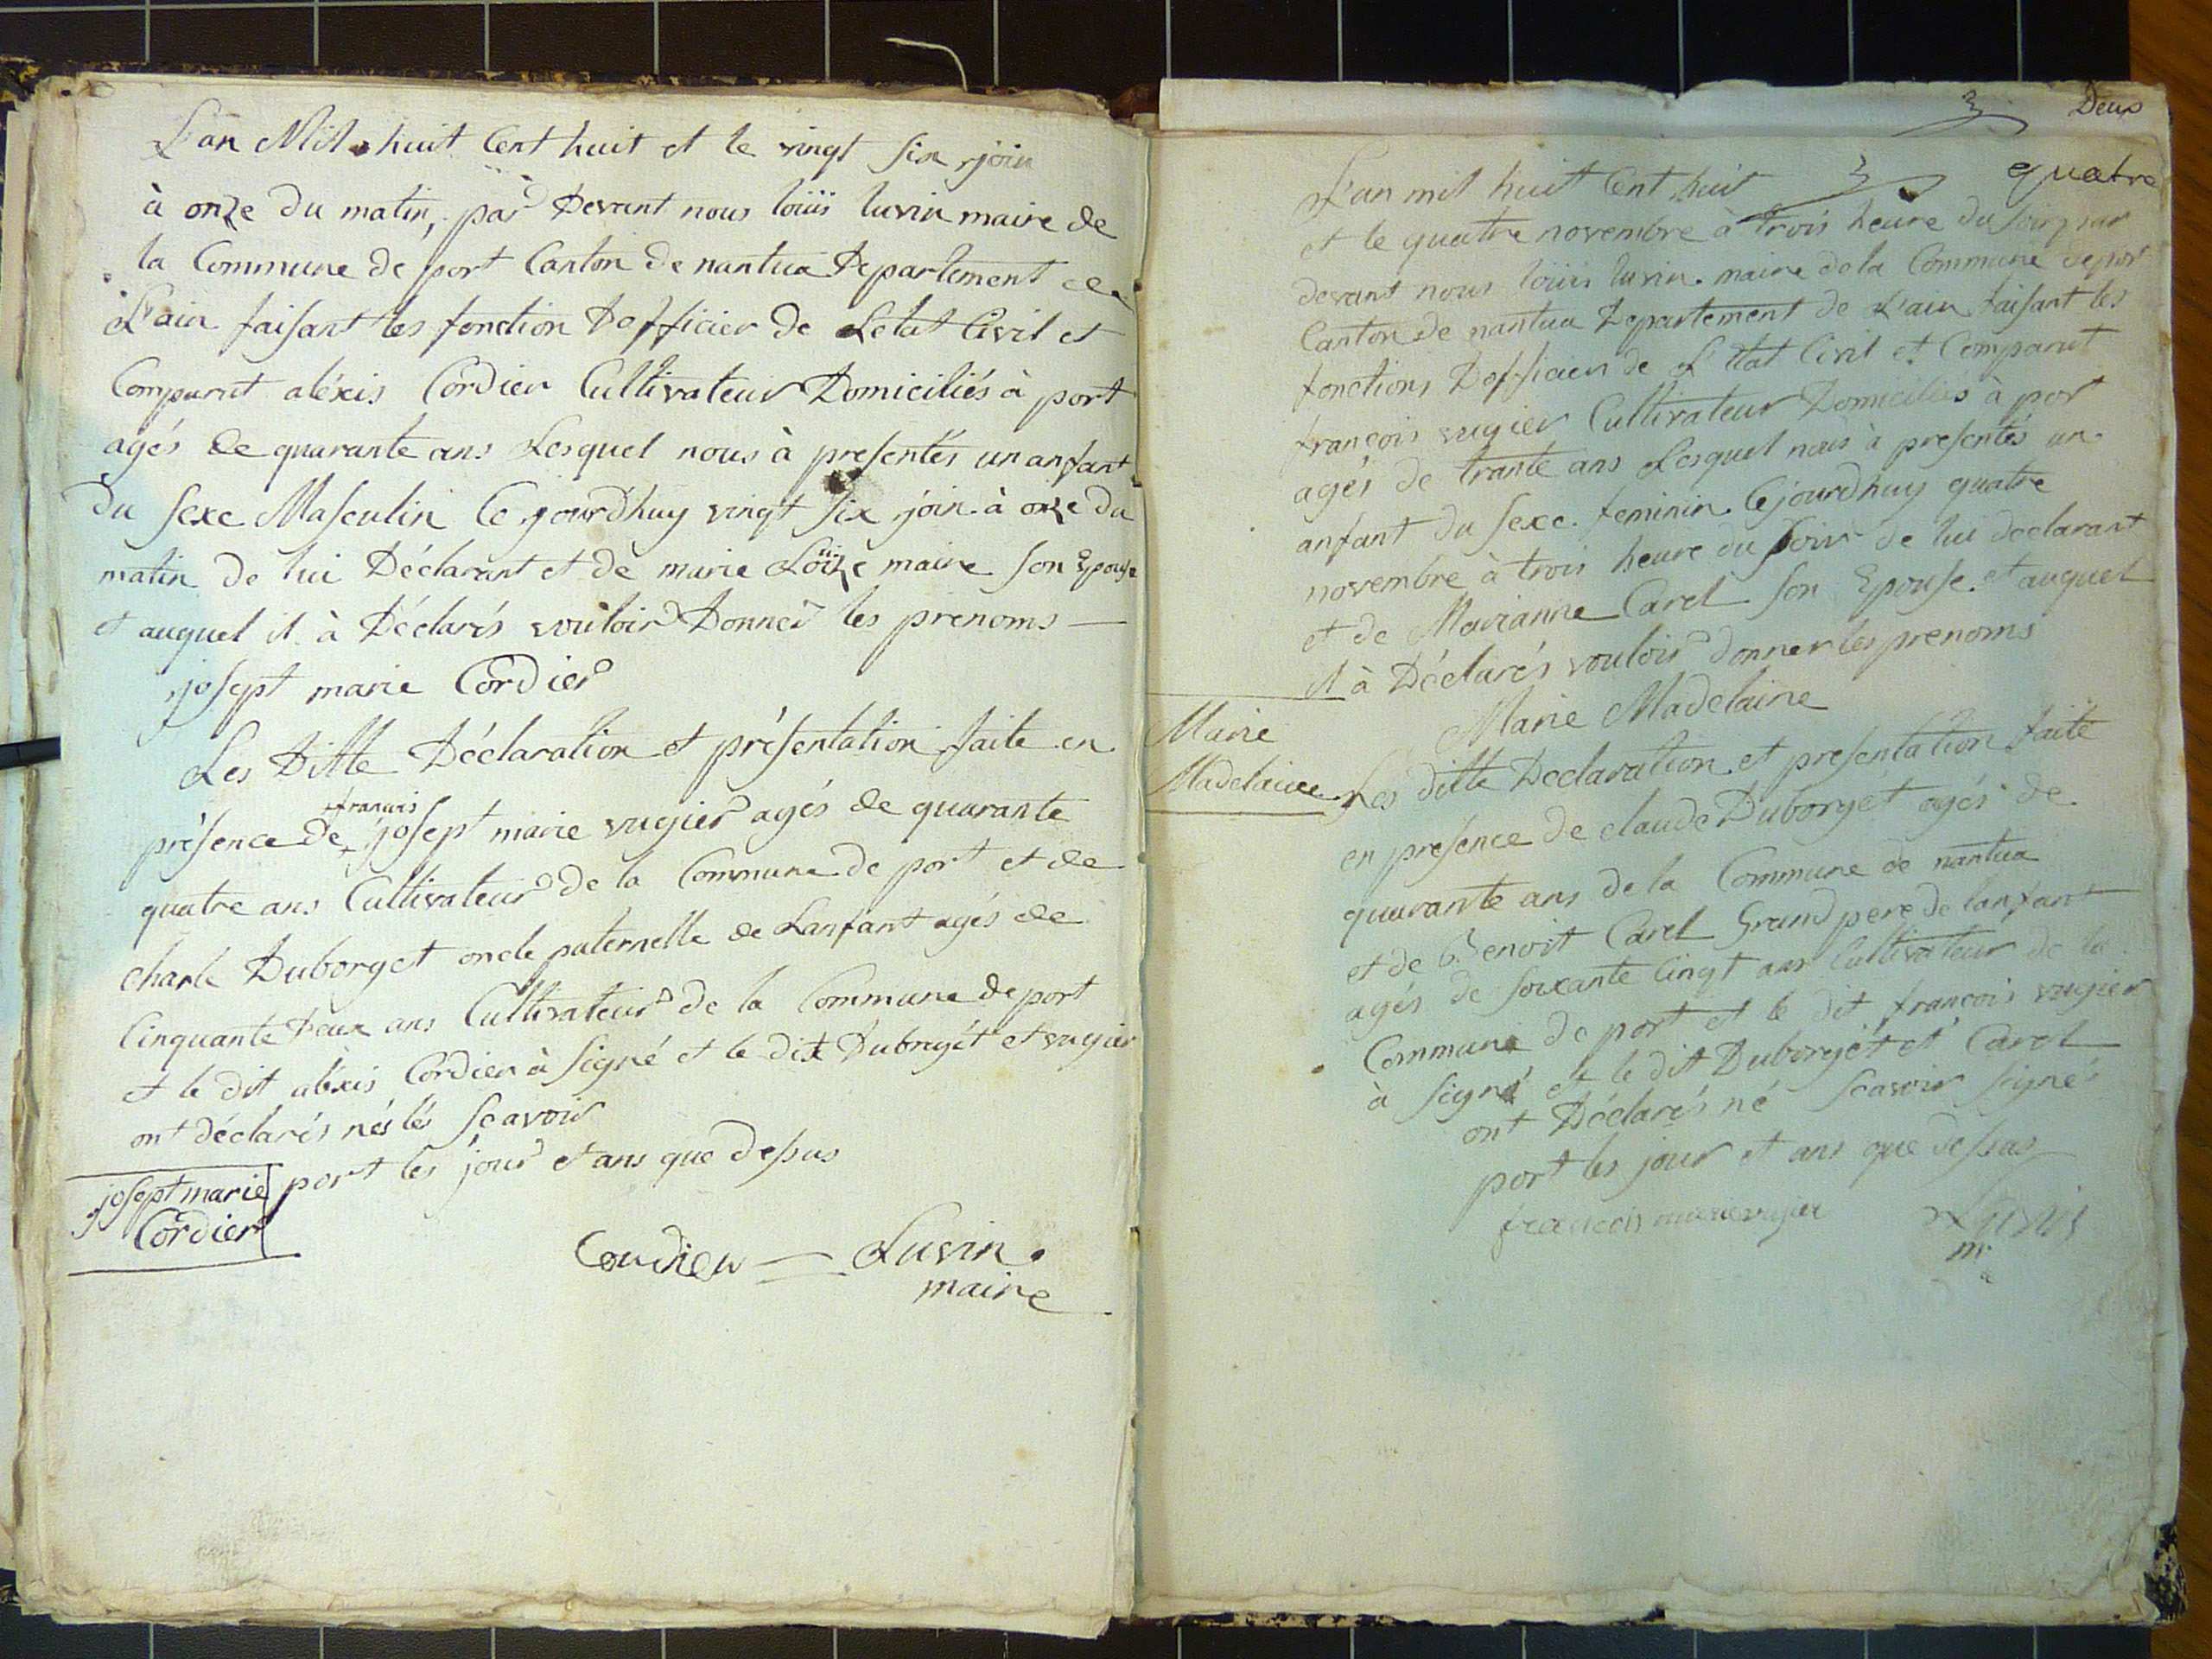 L'an Mil huit Cent huit et le vingt six join
à onze du matin, par Devant nous loüis luvin maire de
la Commune de port Canton de nantua Departement de
L'ain faisant les fonction Dofficier de Letat Civil et
Comparut aléxis Cordier Cultivateur Domiciliés à port
agés de quarante ans Lesquel nous à presentés un anfant
du sexe Masculin Ce jourdhuy vingt six join à onze du
matin de lui Déclarant et de marie Loüize maire son Epouse
et auquel il à Déclarés vouloir Donner les prenoms
josept marie Cordier
Les Ditte Déclaration et présentation faite en
présence de françois josept marie vugier agés de quarante
quatre ans Cultivateur de la Commune de port et de
charle Duborget oncle paternelle de Lanfant agés de
Cinquante Deux ans Cultivateur de la Commune de port
et le dit aléxis Cordier à signé et le dit Duborgét et vugier
ont déclarés nés lés scavoir
port les jour et ans que dessus
josept marie
Cordier
Cordier Luvin
maire
Deux
quatre
L'an mil huit Cent huit
et le quatre novembre à trois heure du soir par
devant nous loüis luvin maire de la Commune de port
Canton de nantua Departement de L'ain faisant les
fonctions Dofficier de L'Etat Civil et Comparut
françois vugier Cultivateur Domiciliés à port
agés de trante ans Lesquel nous à presentés un
anfant du sexe feminin Cejourdhuy quatre
novembre à trois heure du soir de lui declarant
et de Marianne Carel son Epouse et auquel
il à Déclarés vouloir donner les prenoms
Marie Madelaine
Marie
Madelaine
Les ditte Declaration et presentation faite
en presence de claude Duborgét agés de
quarante ans de la Commune de nantua
et de Benoit Carel Grand pere de lanfant
agés de soixante Cinqt ans Cultivateur de la
Commune de port et le dit françois vugier
à signé et le dit Duborgét et Carel
ont Déclarés né scavoir signés
port les jour et ans que dessus
francois marie vugier Luvin
mr